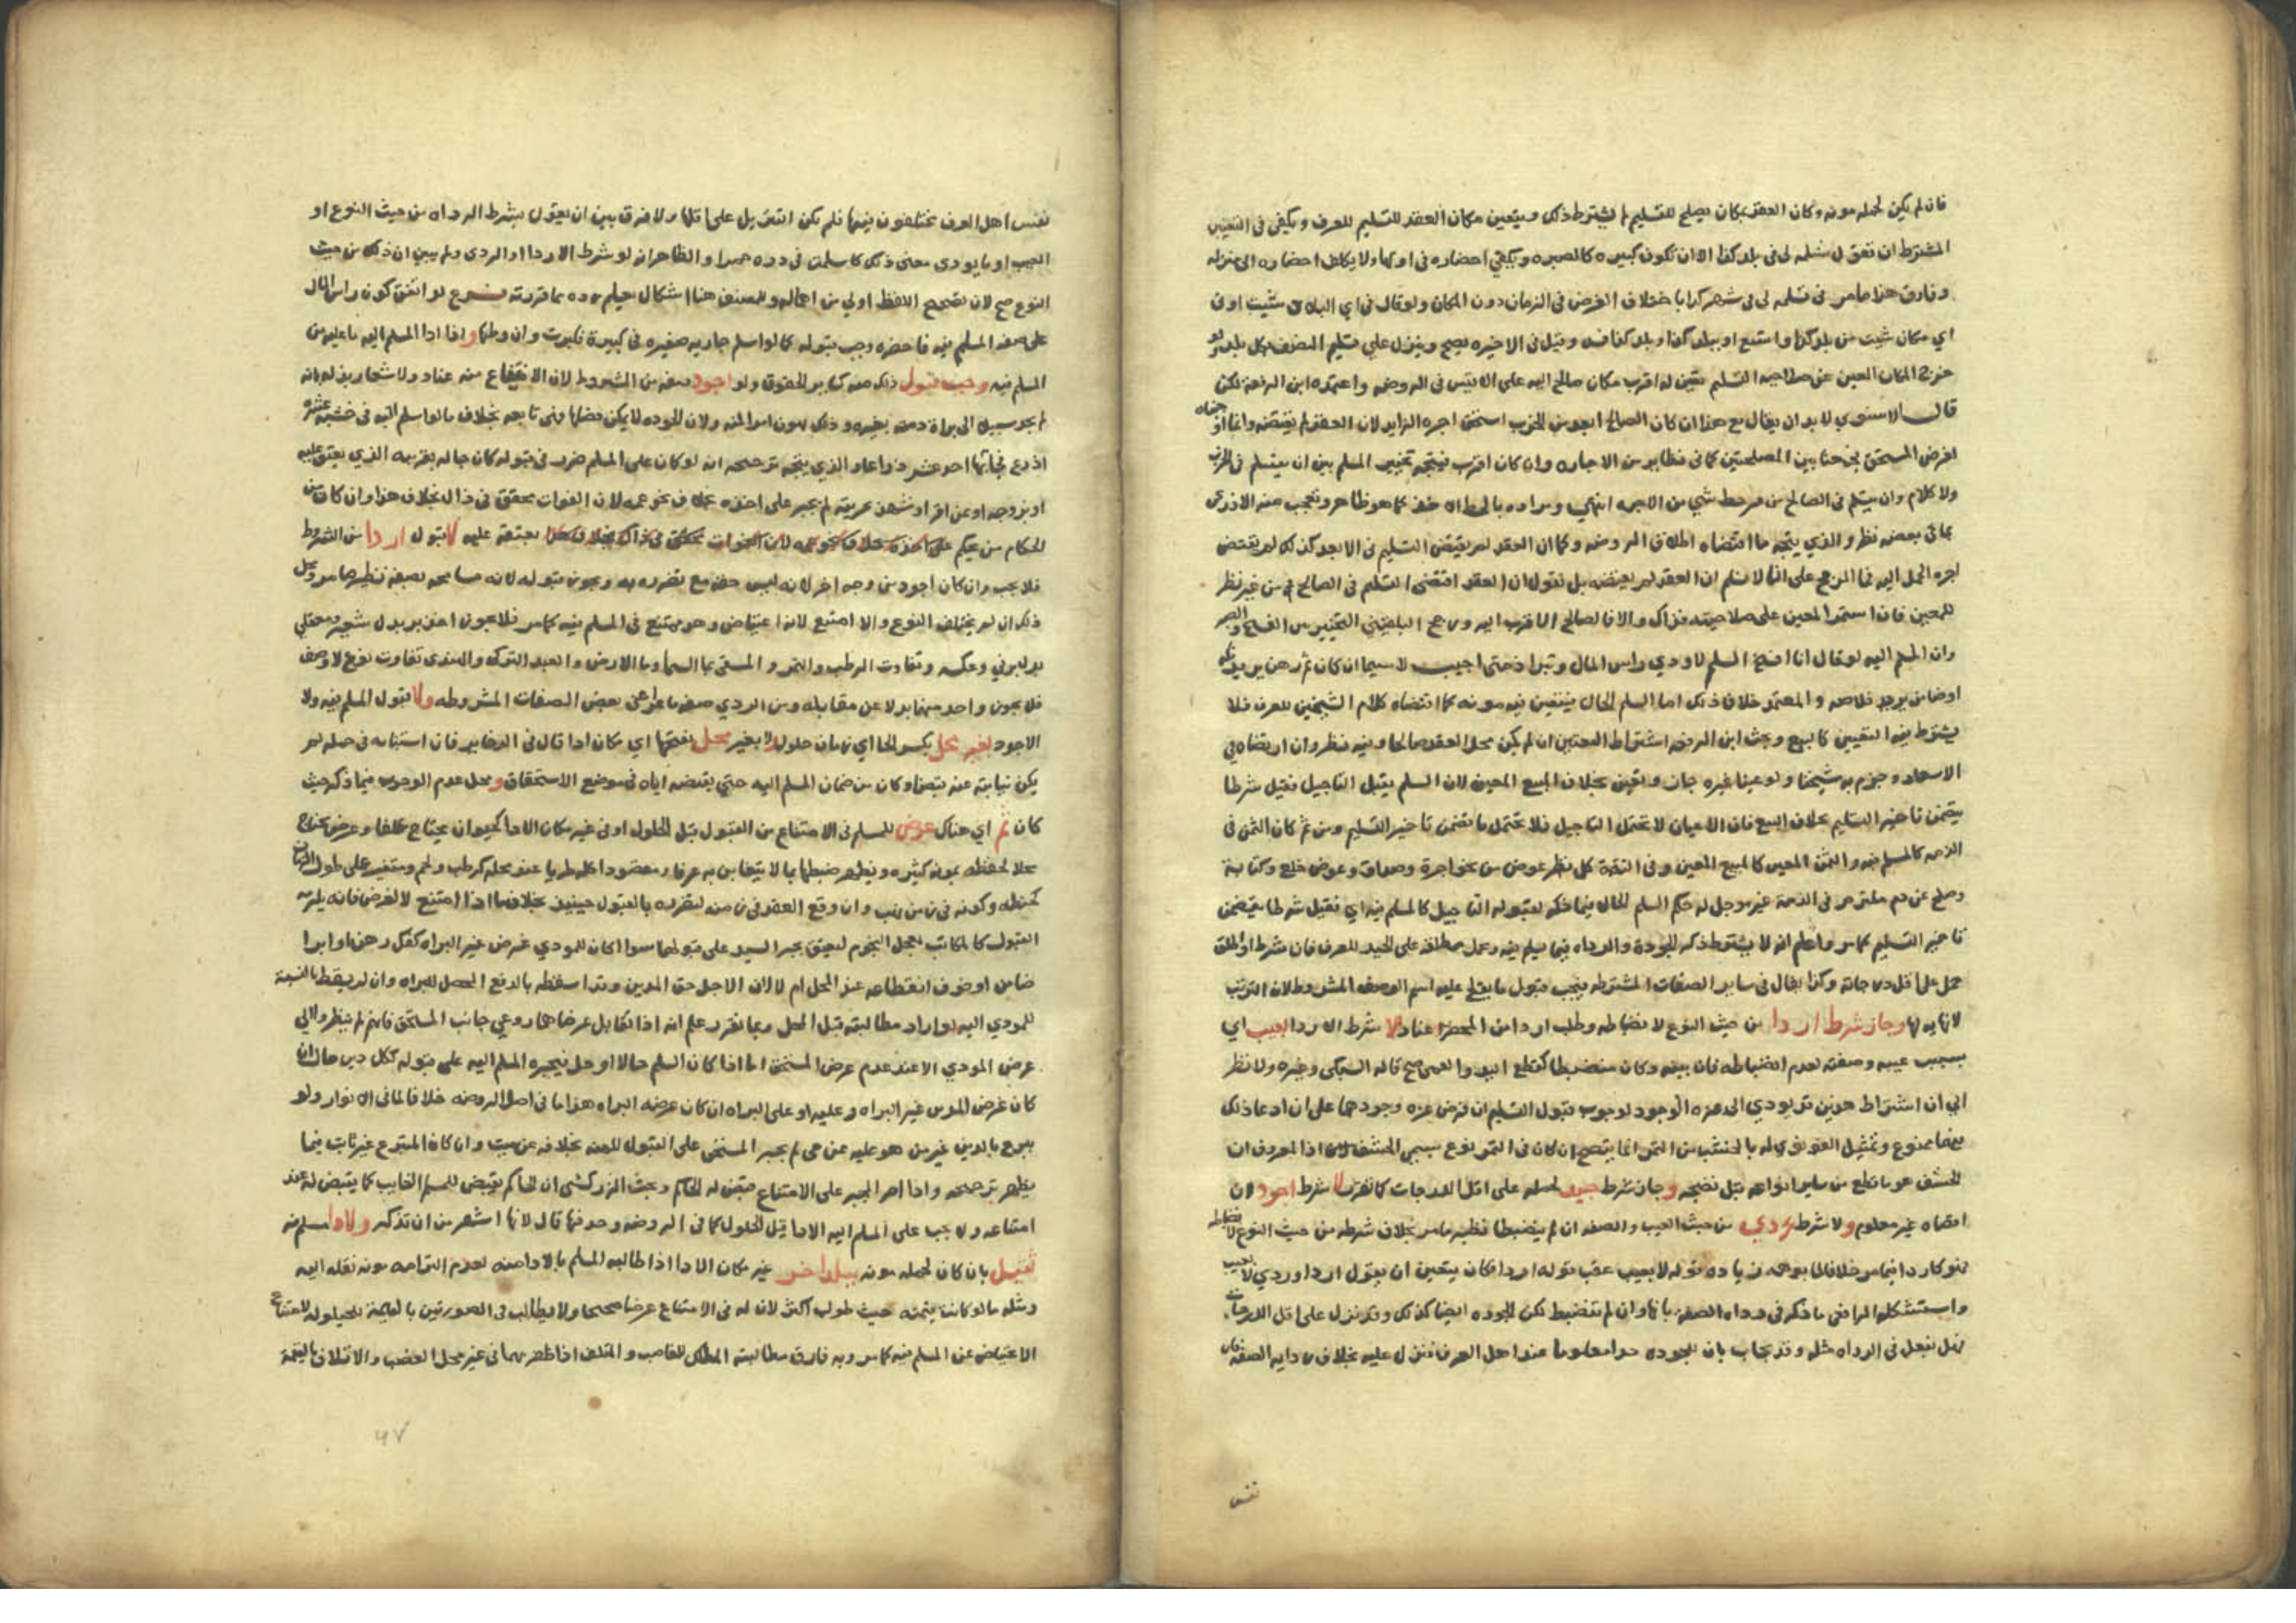 فان لم يكن لحمله مونه وكان العقد بمكان يصلح للتسليم لم يشترط ذلك ويتعين مكان العقد للتسليم للعرف ويكفي في التعيين
المشترط ان تقول تسلمه لي في بلد كذا الا ان تكون كبيره كالبصره ويكفي احضاره في اولها ولا يكلف احضاره الى منزله
وفارق هذا مامر في تسلمه لي في شهر كذا باختلاف الغرض في الزمان دون المكان ولو قال في اي البلاد شئت او في
اي مكان شئت من بلد كذا واسع او ببلد كذا وبلد كذا فسد وقيل في الاخيره يصح وينزل على تسليم النصف بكل بلد ولو
خرج المكان المعين عن صلاحية التسليم تعين له اقرب مكان صالح اليه على الاقيس في الروضه واعتمده ابن الرفعه لكن
قال الاسنوي لا بد ان يقال مع هذا ان كان الصالح ابعد من الخرب استحق اجره الزايد لان العقد لم يقتضه وانما اوجبناه
لغرض المستحق فجمعنا بين المصلحتين كما في نظايره من الاجاره وان كان اقرب فيتجه تخيير المسلم بين ان يتسلم في الخرب
ولا كلام وان يتسلم في الصالح من غير حط شي من الاجره انتهى ومراده بالحط الاخذ كما هو ظاهر وتعجب منه الاذرعي
بما في بعضه نظر والذي يتجه ما اقتضاه اطلاق الروضه وكما ان العقد لم يقتض التسليم في الابعد كذلك لم يقتض
اجره الحمل اليه فما المرجح على انا لا نسلم ان العقد لم يقتضه بل نقول ان العقد اقتضى التسليم في الصالح من غير نظر
للمعين فان استمر المعين على صلاحيته فذاك والا فالصالح الاقرب اليه ورجح البلقيني التخيير بين الفسخ والصبر
وان المسلم اليه لو قال انا افسخ السلم لاودي راس المال وتبرا ذمتي اجيب لا سيما ان كان ثم رهن يريد فكه
او ضامن يريد خلاصه والمعتمد خلاف ذلك اما السلم الحال فيتعين فيه موضعه كما اقتضاه كلام الشيخين للعرف فلا
يشترط فيه التعيين كالبيع وبحث ابن الرفعه اشتراط التعيين ان لم يكن محل العقد صالحا وفيه نظر وان ارتضاه في
الاسعاد وجزم به شيخنا ولو عينا غيره جاز وتعين بخلاف المبيع المعين لان السلم يقبل التاجيل فقبل شرطا
يتضمن تاخير التسليم بخلاف البيع فان الاعيان لا تحتمل التاجيل فلا تحتمل ما يتضمن تاخير التسليم ومن ثم كان الثمن في
الذمه كالمسلم فيه والثمن المعين كالمبيع المعين وفي التتمة كل نظير عوض من نحو اجرة وصداق وعوض خلع وكتابة
وصلح عن دم ملتزم في الذمة غير موجل له حكم السلم الحال فيما ذكر لقبوله التاجيل كالمسلم فيه اي فقبل شرطا يتضمن
تاخير التسليم كما مر واعلم انه لا يشترط ذكر الجودة والرداه فيما يسلم فيه وحمل مطلقه على الجيد للعرف فان شرط او اطلق
حمل على اقل درجاته وكذا يقال في ساير الصفات المشترطه فيجب قبول ما يقع عليه اسم الوصف المشروط لان الرتب
لا نهاية لها وجاز شرط اردا من حيث النوع لانضباطه وطلب اردا من المحضر عناد لا شرط الاردا لعيب اي
بسبب عيبه وصفته لعدم انضباطه فان بينه وكان منضبطا كقطع اليد والعمى صح قاله السبكي وغيره ولا نظر
الى ان اشتراط هذين قد يودي الى عزه الوجود لوجوب قبول التسليم ان فرض عزه وجودهما على ان ادعا ذلك
فيهما ممنوع وتمثيل القونوي له بالحشف من التمر انما يتضح ان كان في التمر نوع يسمى الحشف اذ المعروف ان
الحشف هو ما قطع من ساير انواعه قبل نضجه وجاز شرط جيد لحمله على اقل الدرجات كما تقرر لا شرط اجود لان
اقصاه غير معلوم ولا شرط ردي من حيث العيب والصفه ان لم ينضبطا نظير مامر بخلاف شرطه من حيث النوع لانضباطه
فهو كاردا فيما مر خلافا لما يوهمه زياده قوله لا بعيب عقب قوله اردا فكان يتعين ان يقول اردا وردي لا بعيب
واستشكل الرافعي ما ذكر في رداه الصفه بانها وان لم تنضبط لكن الجوده ايضا كذلك وقد نزل على اقل الدرجات
فهل نفعل في الرداه مثله وقد يجاب بان للجوده حدا معلوما عند اهل العرف فنزل عليه بخلاف رداية الصفه فان
نفس
نفس اهل العرف مختلفون فيها فلم يكن التنزيل على اقلها ولا فرق بين ان يقول بشرط الرداه من حيث النوع او
العيب او ما يودي معنى ذلك كاسلمت في ذره حمرا والظاهر انه لو شرط الاردا او الردي ولم يبين ان ذلك من حيث
النوع صح لان تصحيح اللفظ اولى من اهماله وللمصنف هنا اشكال يعلم رده مما قررته فرع لو اتفق كون راس المال
على صفه المسلم فيه فاحضره وجب قبوله كما لو اسلم جاريه صغيره في كبيرة فكبرت وان وطئها واذا ادا المسلم اليه ما عليه من
المسلم فيه وجب قبول ذلك منه كساير الحقوق ولو اجود صفه من المشروط لان الامتناع منه عناد ولاشعار بذله بانه
لم يجد سبيلا الى براة ذمته بغيره وذلك يهون امر المنه ولان الجوده لا يمكن فصلها فهي تابعه بخلاف ما لو اسلم اليه في خشبة عشره
اذرع فجا بها احد عشر ذراعا والذي يتجه ترجيحه انه لو كان على المسلم ضرر في قبوله كان جا له بفرعه الذي يعتق عليه
او بزوجه او عن اقر او شهد بحريته لم يجبر على اخذه بخلاف نحو عمه لان الفوات محقق في ذاك بخلاف هذا وان كان من
الحكام من يحكم على اخذه بخلاف نحو عمه لان الفوات محقق في ذاك بخلاف هذا بعتقه عليه لا قبول اردا من المشروط
فلا يجب وان كان اجود من وجه اخر لانه ليس حقه مع تضرره به ويجوز قبوله لانه مسامحه بصفه نظير ما مر ومحل
ذلك ان لم يختلف النوع والا امتنع لانه اعتياض وهو ممتنع في المسلم فيه كما مر فلا يجوز اخذ بر بدل شعير ومعقلي
بدل برني وعكسه وتفاوت الرطب والتمر والمسقى بما السما وما الارض والعبد التركي والهندي تفاوت نوع لا وصف
فلا يجوز واحد منها بدلا عن مقابله ومن الردي صفه ما عرا عن بعض الصفات المشروطه ولا قبول المسلم فيه ولا
الاجود لغير محل بكسر الحا اي زمان حلول ولا بغير محل بفتحها اي مكان ادا قال في الذخاير فان استنابه في حمله لم
يكن نيابته عنه قبضا وكان من ضمان المسلم اليه حتى يقبضه اياه في موضع الاستحقاق ومحل عدم الوجوب فيما ذكر حيث
كان ثم اي هناك غرض للمسلم في الامتناع من القبول قبل الحلول او في غير مكان الادا كحيوان يحتاج علفا وعرض يحتاج
محلا لحفظه بمونه كثيره ويظهر ضبطها بما لا يتغابن به عرفا ومقصودا اكله طريا عند محله كرطب ولحم ومتغير على طول الزمان
كحنطه وكونه في زمن نهب وان وقع العقد في زمنه لتضرره بالقبول حينيذ بخلاف ما اذا امتنع لا لغرض فانه يلزمه
القبول كالمكاتب يعجل النجوم ليعتق يجبر السيد على قبولها سوا اكان للمودي غرض غير البراه كفك رهن او ابرا
ضامن او خوف انقطاعه عند المحل ام لا لان الاجل حق المدين وقد اسقطه بالدفع المحصل للبراه وان لم يسقط بالنسبة
للمودي اليه لو اراد مطالبته قبل المحل وبما تقرر علم انه اذا تقابل غرضاهما روعي جانب المستحق فانهم لم ينظروا الى
غرض المودي الا عند عدم غرض المستحق اما اذا كان السلم حالا او حل فيجبره المسلم اليه على قبوله ككل دين حال ان
كان غرض المدين غير البراه وعليه او على البراه ان كان غرضه البراه هذا ما في اصل الروضه خلافا لما في الانوار ولو
تبرع بالدين غير من هو عليه عن حي لم يجبر المستحق على القبول للمنه بخلافه عن ميت وان كان المتبرع غير ثابت فيما
يظهر ترجيحه واذا اصر المجبر على الامتناع قبض له الحاكم وبحث الزركشي ان الحاكم يقبض للمسلم الغايب كما يقبض له عند
امتناعه ولا يجب على المسلم اليه الادا قبل الحلول كما في الروضه وحذفها قال لانها اشهر من ان تذكر ولا ادا مسلم فيه
ثقيل بان كان لحمله مونه ببلد اخر غير مكان الادا اذا طالبه المسلم بالادا منه لعدم التزامه مونه نقله اليه
ومثله ما لو كانت قيمته حيث طولب اكثر لان له في الامتناع غرضا صحيحا ولا يطالب في الصورتين بالقيمة للحيلوله لامتناع
الاعتياض عن المسلم فيه كما مر وبه فارق مطالبته المالك للغاصب والمتلف اذا ظفر بهما في غير محل الغصب والاتلاف بالقيمة
٩٧